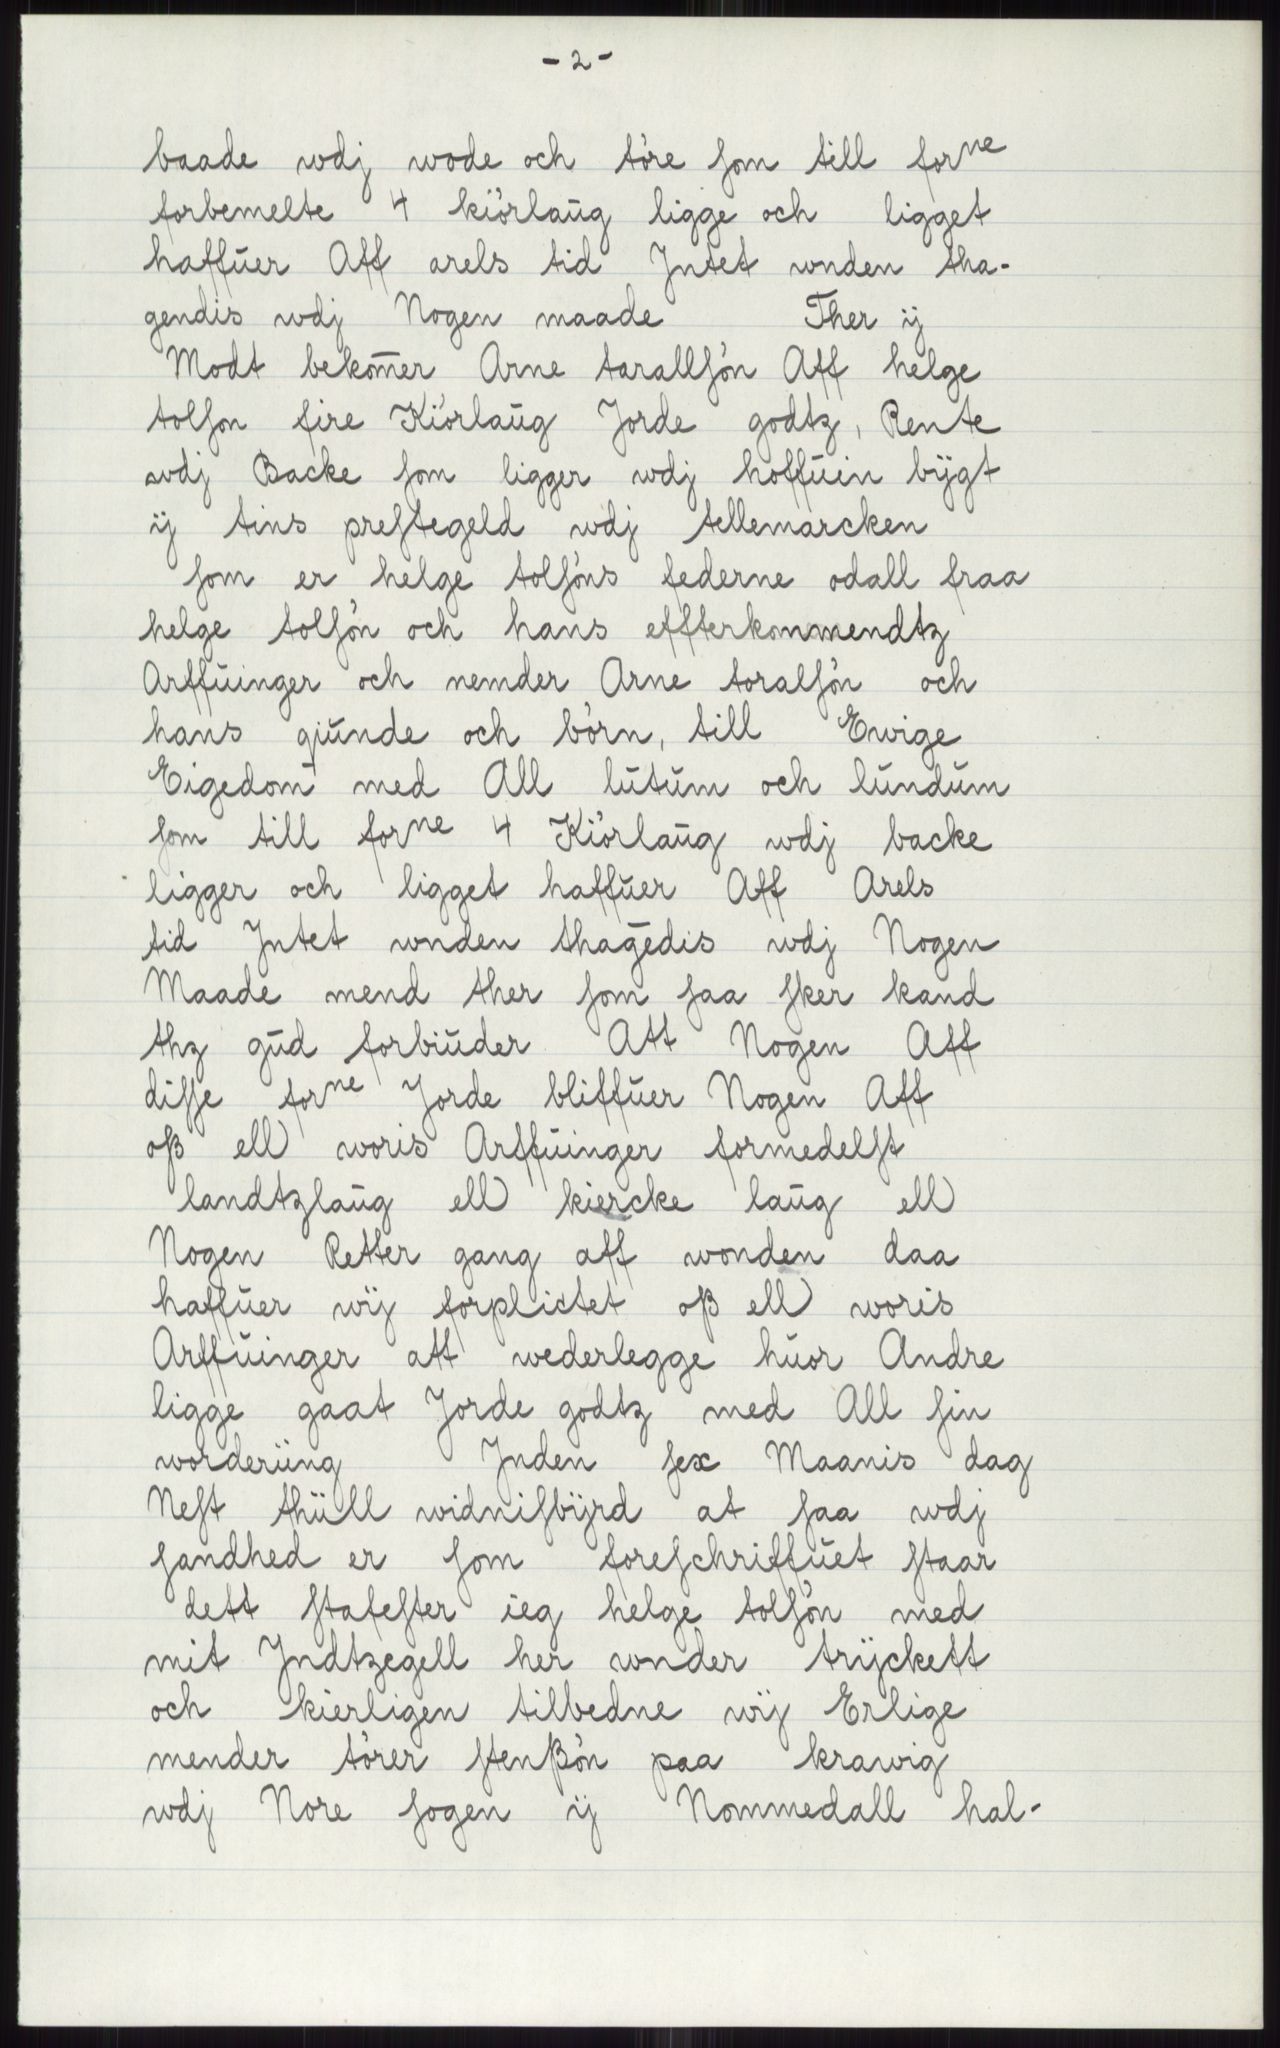 - 2 -
baade wdj wode och töre ſom till forne
forbemelte 4 kiörlaūg ligge och ligget
haffūer Aff arels tid Jntet wnden tha-
gendis wdj Nogen maade Ther ij
Modt bekom̄er Arne tarallſön Aff helge
tolſon fire Kiörlaūg Jorde godtz, Rente
wdj Backe ſom ligger wdj hoffūin bÿgt
ij tins preſtegeld wdj tellemarcken
ſom er helge tolſöns federne odall fraa
helge tolſön och hans effterkommendtz
Arffūinger och nemder Arne toralſön och
hans qūinde och börn, till Ewige
Eigedom̄ med All lūtūm och lūndūm
ſom till forne 4 Kiörlaūg wdj backe
ligger och ligget haffūer Aff Arels
tid Jntet wnden thagēdis wdj Nogen
Maade mend ther ſom ſaa ſker kand
thz gūd forbiūder Att Nogen Aff
diſſe forne Jorde bliffūer Nogen Aff
oß ell woris Arffūinger formedelſt
landtzlaūg ell kiercke laūg ell
Nogen Retter gang aff wonden daa
haffūer wij forplictet oß ell woris
Arffūinger att wederlegge hūor Andre
ligge gaat Jorde godtz med All ſin
worderūng Jnden ſex Maanis dag
Neſt thūll widniſbÿrd at ſaa wdj
ſandhed er ſom foreſchriffūet ſtaar
dett ſtafeſter ieg helge tolſön med
mit Jndtzegell her wnder trÿckett
och kierligen tilbedne wij Erlige
mender törer ſtenßön paa krawig
wdj Nore ſogen ij Nommedall hal-